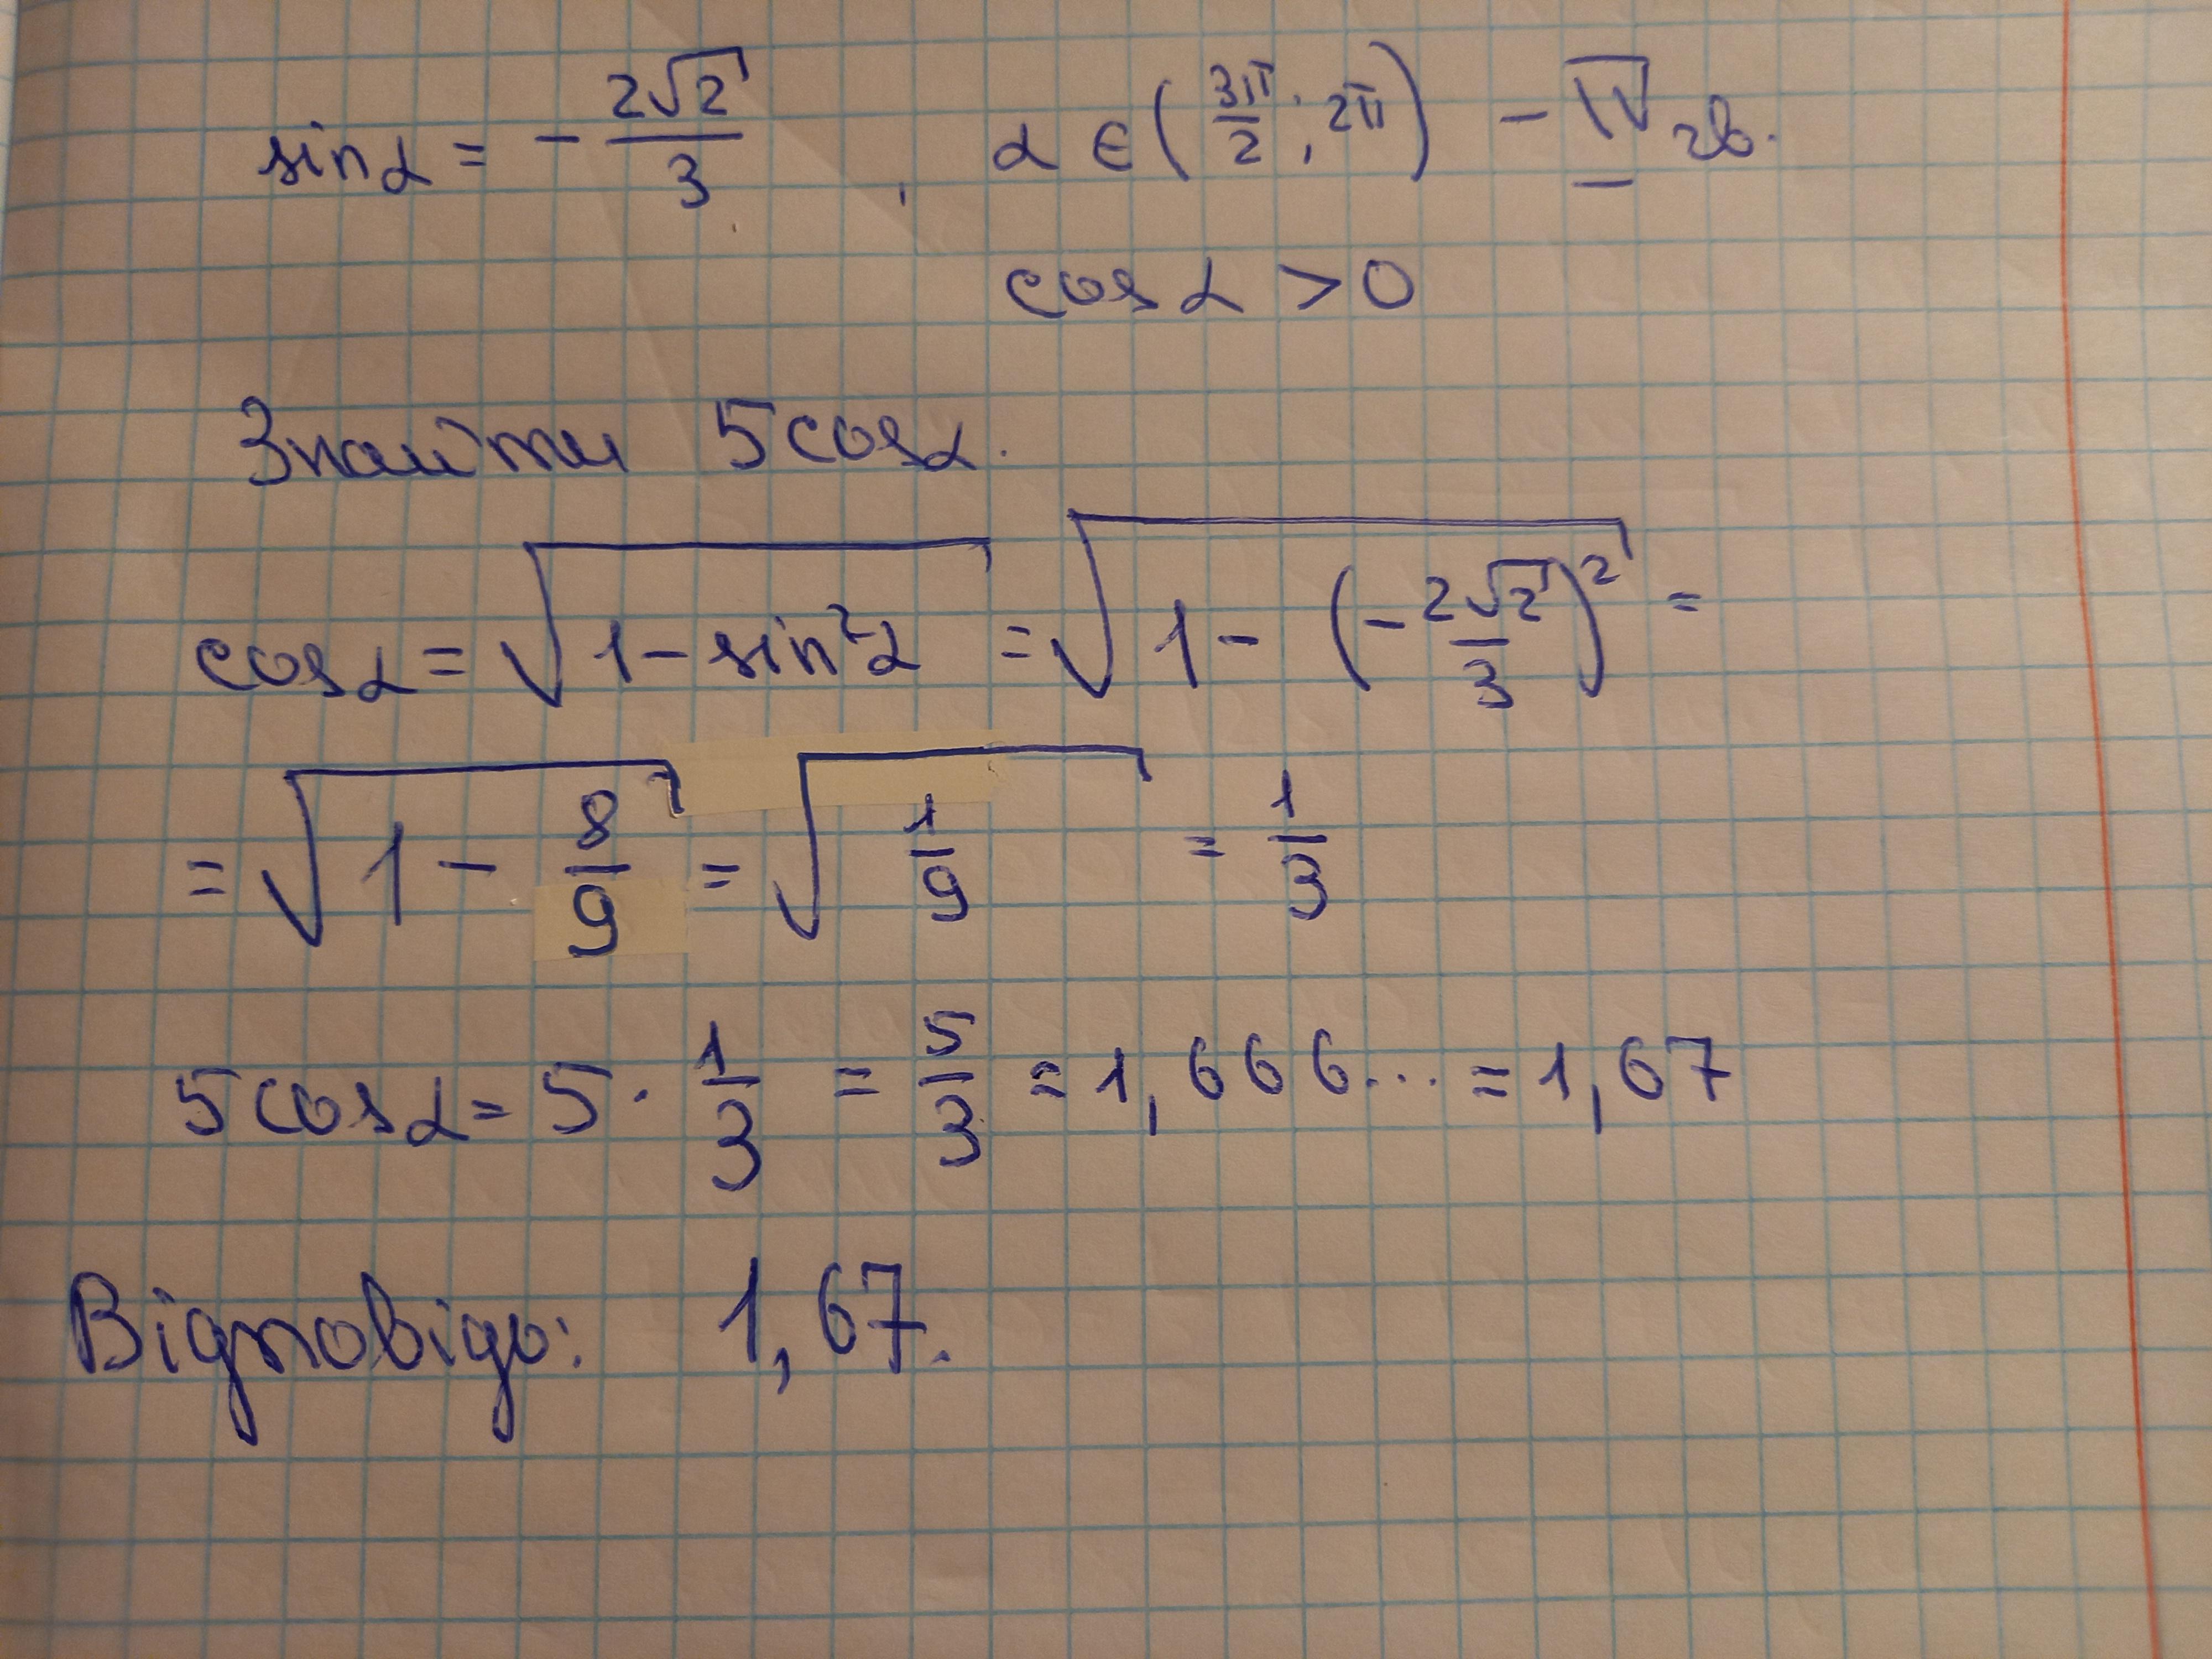 sinα = - 2√2/3 , α ∈ (3π/2 ; 2π) - IV чв.
cosα > 0
Знайти 5cosα.
cosα = √(1 - sin²α) = √(1 - (-2√2/3)²) =
= √(1 - 8/9) = √(1/9) = 1/3
5cosα = 5 · 1/3 = 5/3 = 1,666... = 1,67
Відповідь: 1,67.